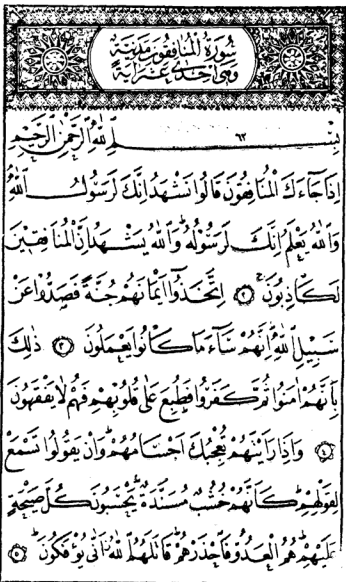 سُورَةُ الْمُنَافِقُونَ مَدَنِيَّةٌ
وَهِيَ اِحْدٰى عَشَرَ اٰيَةً
٦٣
بِسْــــمِ اللّٰهِ الرَّحْمٰنِ الرَّحٖيمِ
اِذَا جَاءَكَ الْمُنَافِقُونَ قَالُوا نَشْهَدُ اِنَّكَ لَرَسُولُ اللّٰهِ
وَاللّٰهُ يَعْلَمُ اِنَّكَ لَرَسُولُهُ وَاللّٰهُ يَشْهَدُ اِنَّ الْمُنَافِقٖينَ
لَكَاذِبُونَ ۚ ﴿٢﴾ اِتَّخَذُٓوا اَيْمَانَهُمْ جُنَّةً فَصَدُّوا عَنْ
سَبٖيلِ اللّٰهِ اِنَّهُمْ سَٓاءَ مَا كَانُوا يَعْمَلُونَ ﴿٣﴾ ذٰلِكَ
بِاَنَّهُمْ اٰمَنُوا ثُمَّ كَفَرُوا فَطُبِعَ عَلٰى قُلُوبِهِمْ فَهُمْ لَا يَفْقَهُونَ
﴿٤﴾ وَاِذَا رَاَيْتَهُمْ تُعْجِبُكَ اَجْسَامُهُمْ وَاِنْ يَقُولُوا تَسْمَعْ
لِقَوْلِهِمْ كَاَنَّهُمْ خُشُبٌ مُسَنَّدَةٌ يَحْسَبُونَ كُلَّ صَيْحَةٍ
عَلَيْهِمْ هُمُ الْعَدُوُّ فَاحْذَرْهُمْ قَاتَلَهُمُ اللّٰهُ اَنّٰى يُؤْفَكُونَ ﴿٥﴾